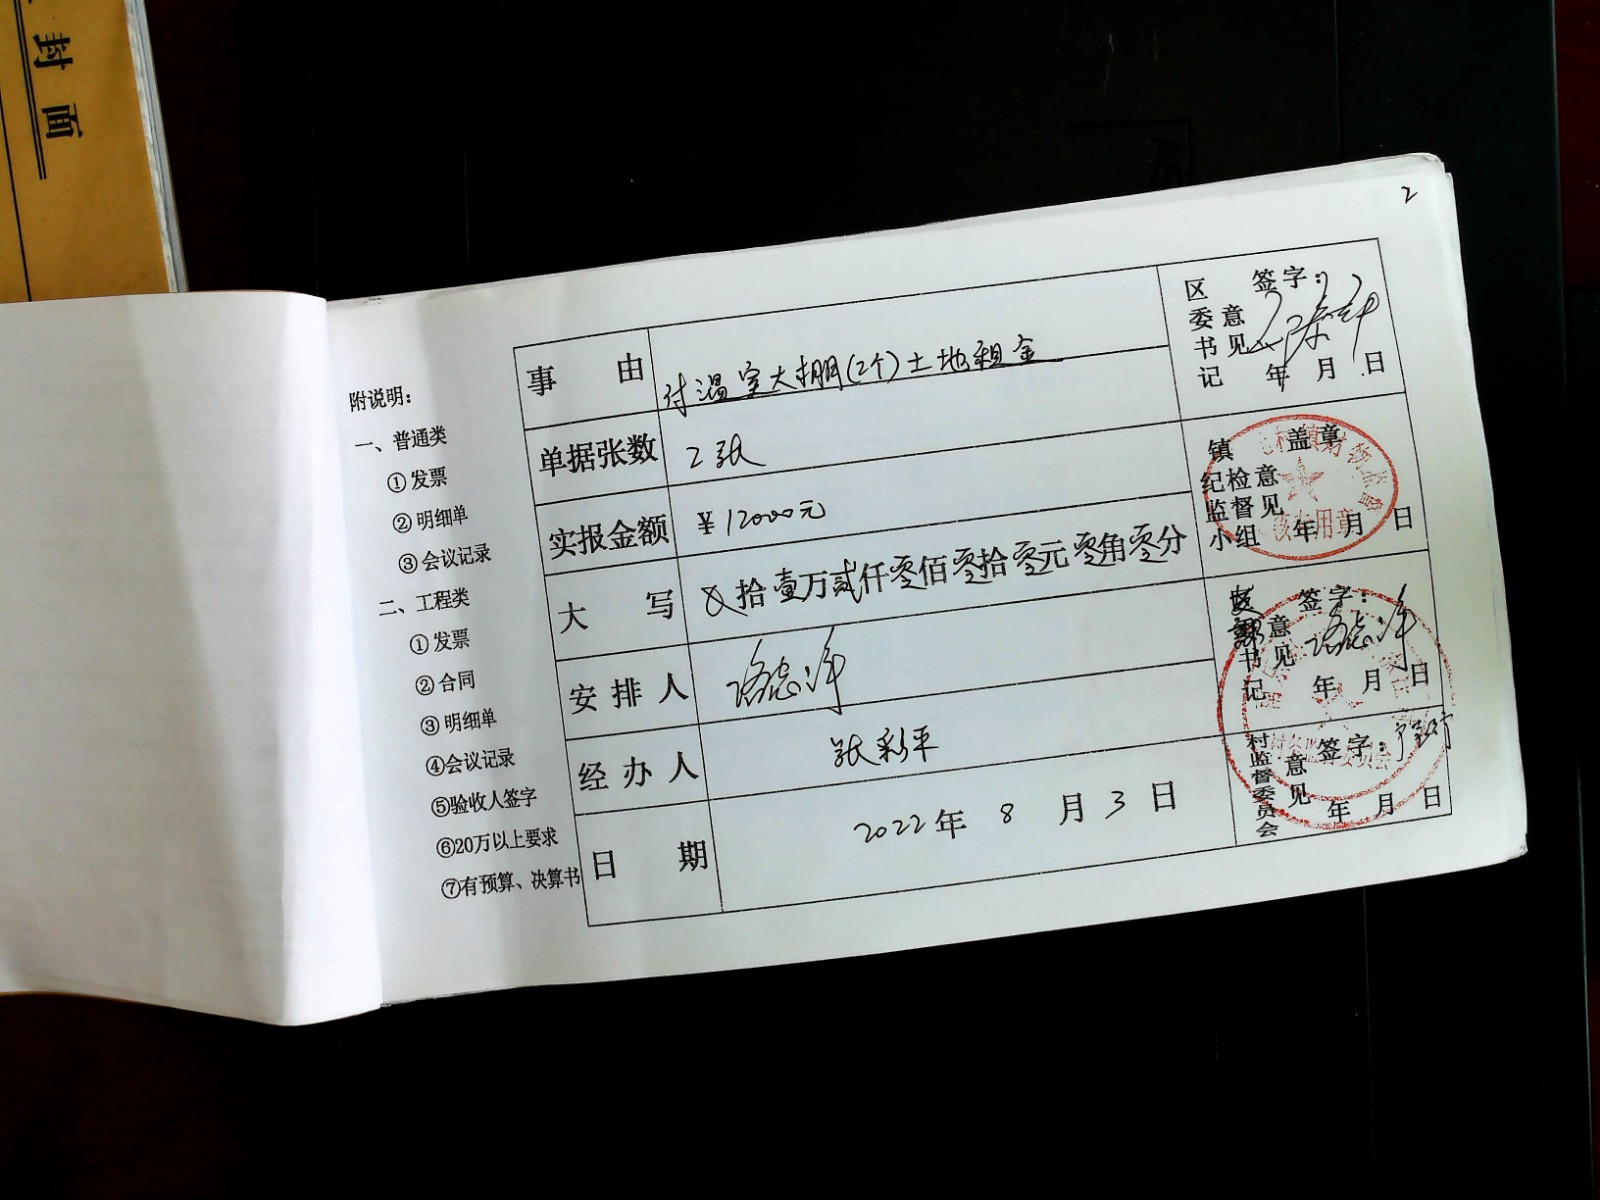 封面
2
附说明:
一、普通类
①发票
②明细单
③会议记录
二、工程类
①发票
②合同
③明细单
④会议记录
⑤验收人签字
⑥20万以上要求
⑦有预算、决算书
事由
付温室大棚(2个)土地租金
单据张数
2张
实报金额
¥12000元
大写
拾壹万贰仟零佰零拾零元零角零分
安排人
经办人
张彩平
日期
2022年8月3日
区委书记意见
签字:
年月日
镇纪检监督小组意见
盖章
年月日
书记意见
签字:
年月日
村监督委员会意见
签字:
年月日